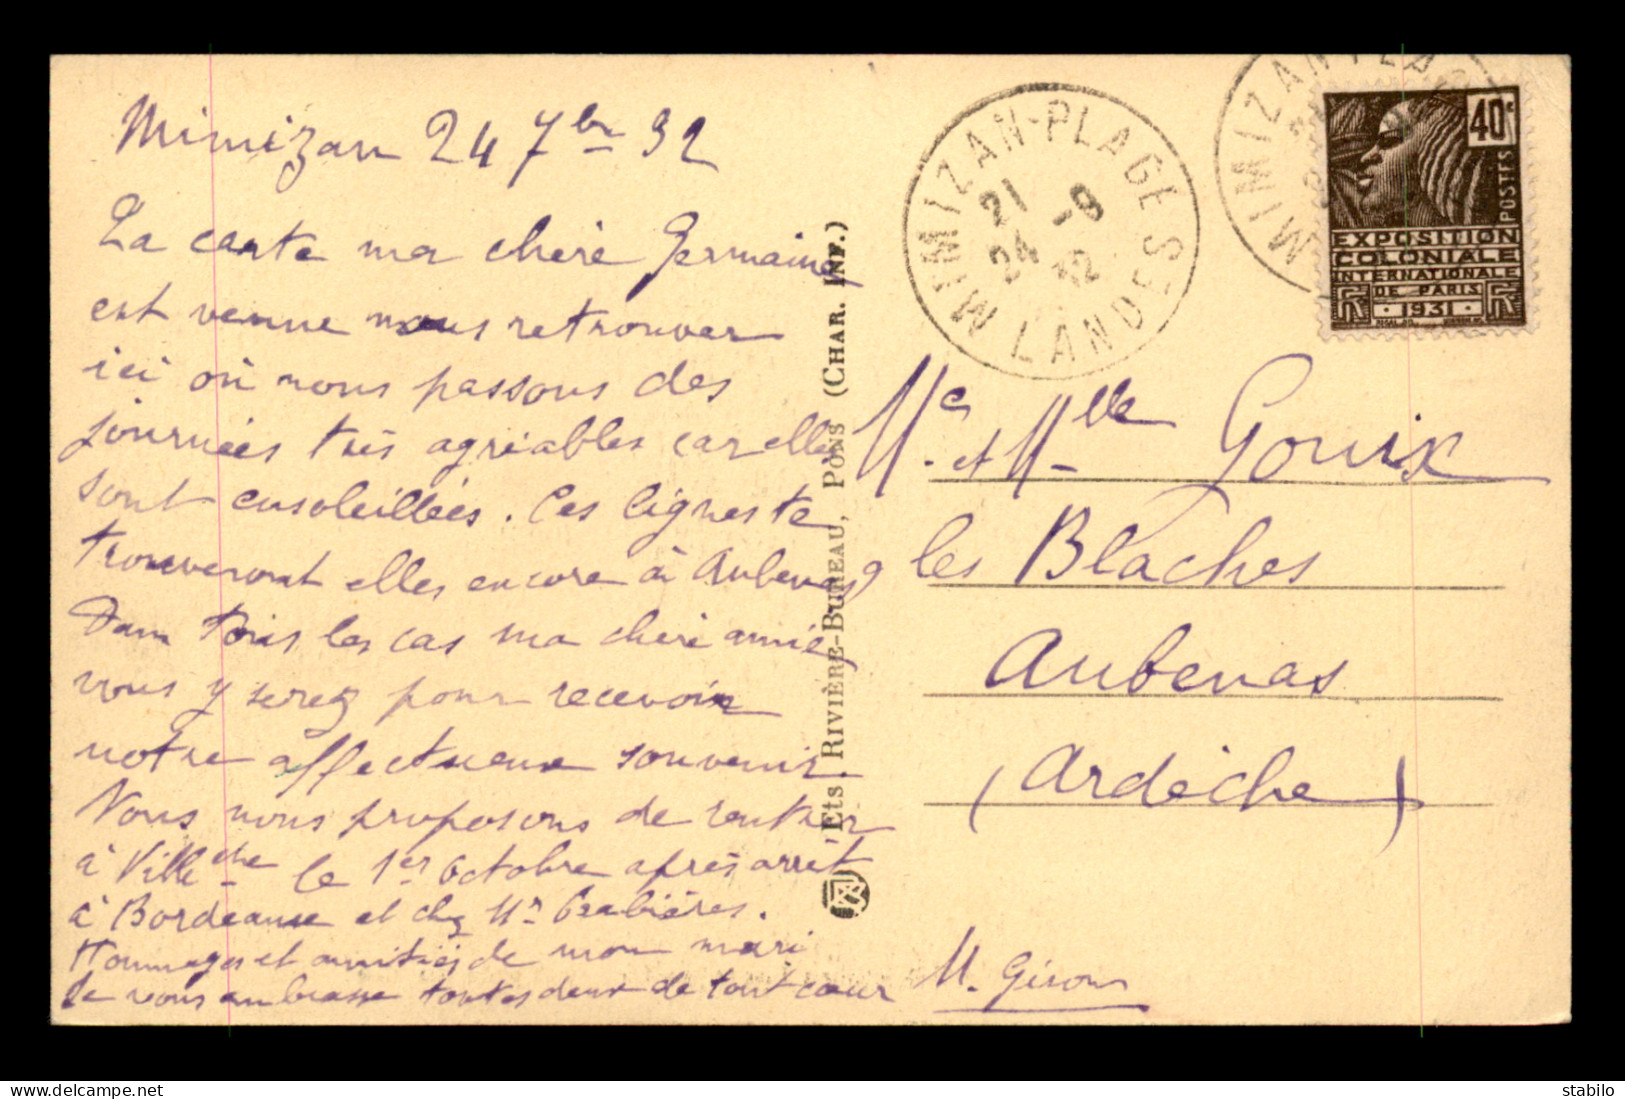 Mimizan 24 7bre 32
La carte ma chère Germaine,
est venue nous retrouver
ici où nous passons des
journées très agréables car elles
sont ensoleillées. Ces lignes te
trouveront elles encore à Aubenas?
Dans tous les cas ma chère amie,
vous y serez pour recevoir
notre affectueux souvenir.
Nous nous proposons de rentrer
à Villeche le 1er Octobre après arrêt
à Bordeaux et chez Mr
Hommages et amitiés de mon mari
Je vous embrasse toutes deux de tout cœur
M. Giron
Ets RIVIÈRE-BUREAU, PONS (CHAR. INF.)
MIMIZAN-PLAGE
21 -9
24 32
LANDES
MIMIZAN-PLAGE
40c
POSTES
EXPOSITION
COLONIALE
INTERNATIONALE
DE PARIS
1931
Me et Mlle Gouix
les Blaches
Aubenas
(Ardèche)
www.delcampe.net
stabilo